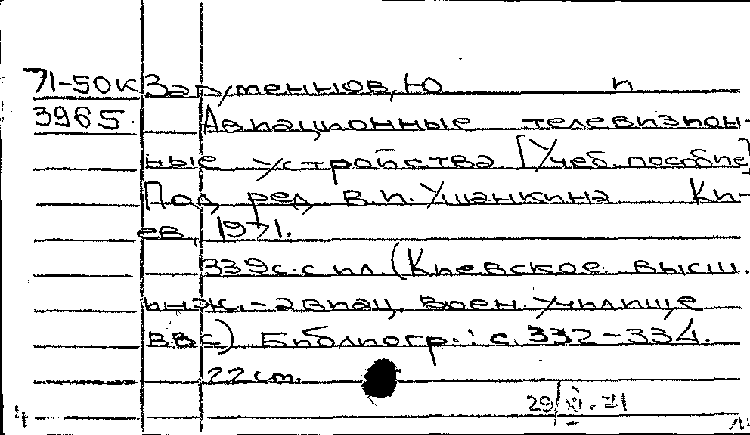 71-50к Ю п
3965 Авиационные телевизион-
ные устройства [Учеб. пособие]
Под ред. В.П. Ушанкина Ки-
ев, 1971.
339с. с ил. (Киевское высш.
инж.-авиац. воен. училище
ВВС) Библиогр.: с. 332-334.
22 см.
29/ . 71